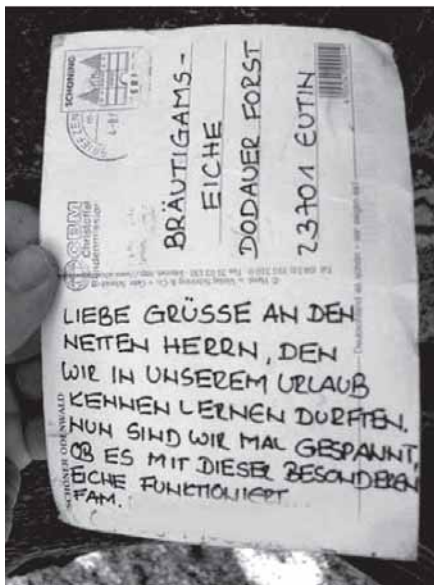 SCHÖNER ODENWALD
LIEBE GRÜSSE AN DEN
NETTEN HERRN, DEN
WIR IN UNSEREM URLAUB
KENNEN LERNEN DURFTEN.
NUN SIND WIR MAL GESPANNT,
OB ES MIT DIESER BESONDEREN
EICHE FUNKTIONIERT...
FAM.
CBM
Christoffel
Blindenmission
SCHÖNING
BRIEFZEN
BRÄUTIGAMS-
EICHE
DODAUER FORST
23701 EUTIN